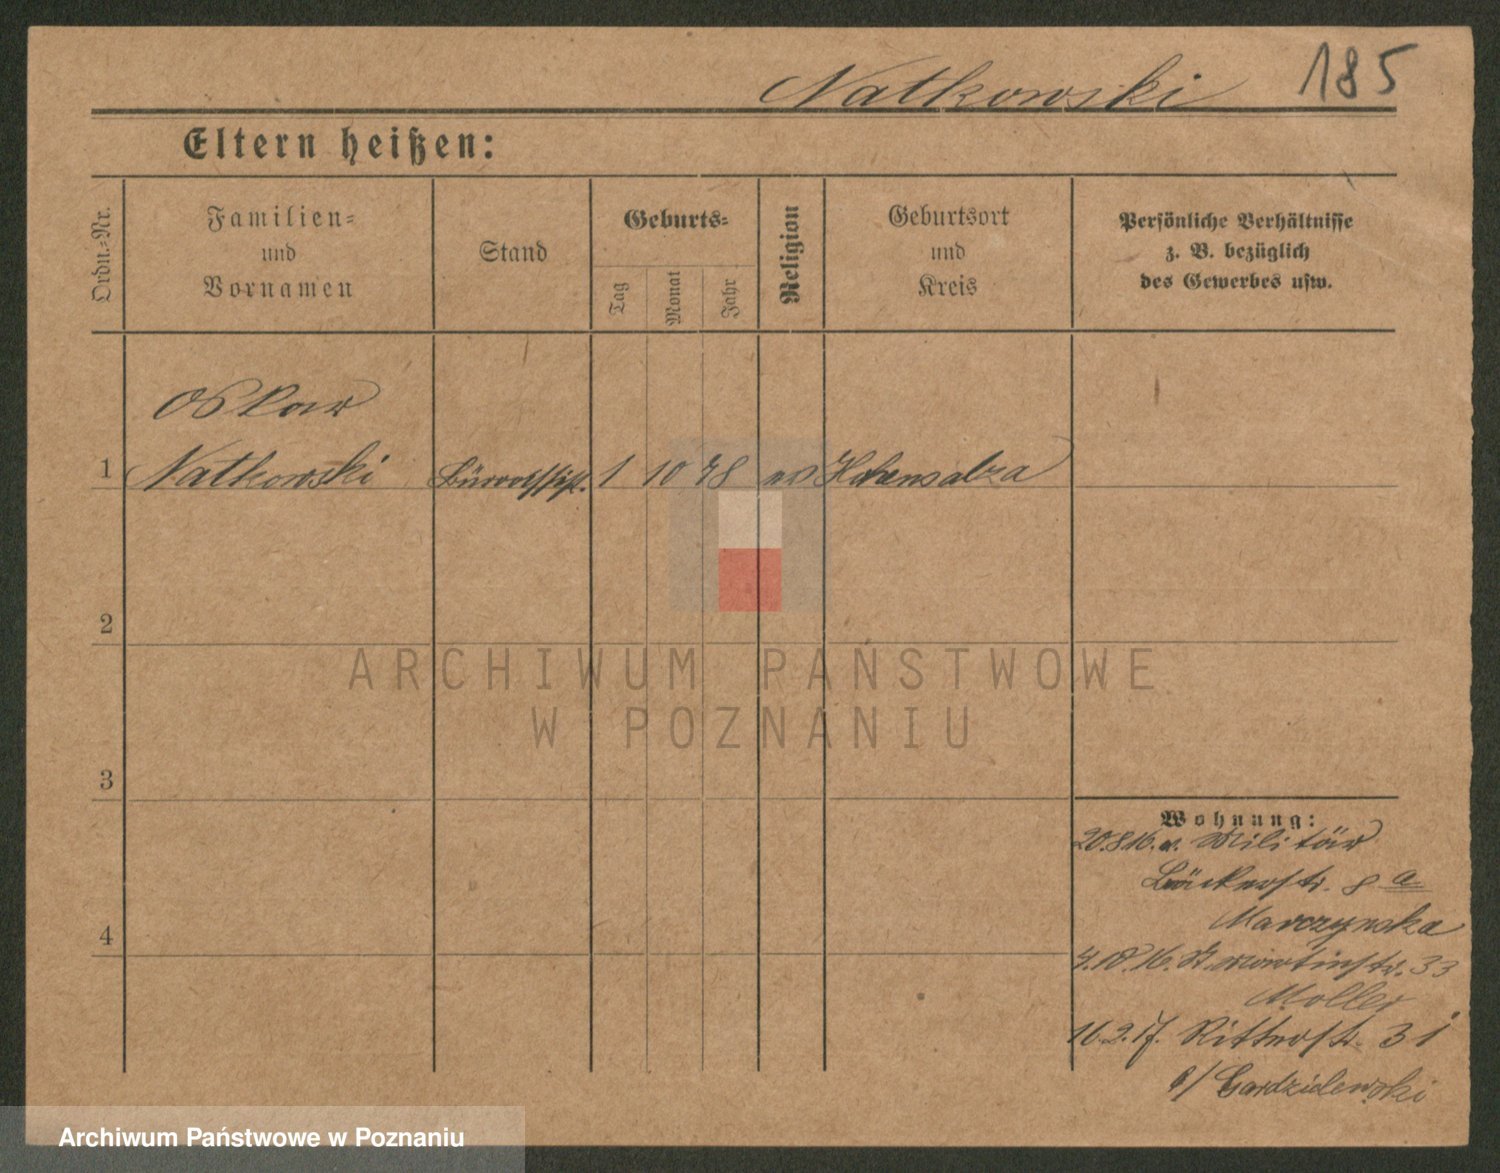 Natkowski 185
Eltern heißen:
Ordn.-Nr.
Familien-
und
Vornamen
Stand
Geburts-
Tag
Monat
Jahr
Religion
Geburtsort
und
Kreis
Persönliche Verhältnisse
z. B. bezüglich
des Gewerbes usw.
Oskar
1 Natkowski 1 10 78 ev Hohensalza
2
3
4
Wohnung:
20.8.16. v. Militär
Bäckerstr. 8 a
Marczynska
4.10.16. St. Martinstr. 33
Moller
16.2.17. Ritterstr. 31
b/
ARCHIWUM PAŃSTWOWE
W POZNANIU
Archiwum Państwowe w Poznaniu